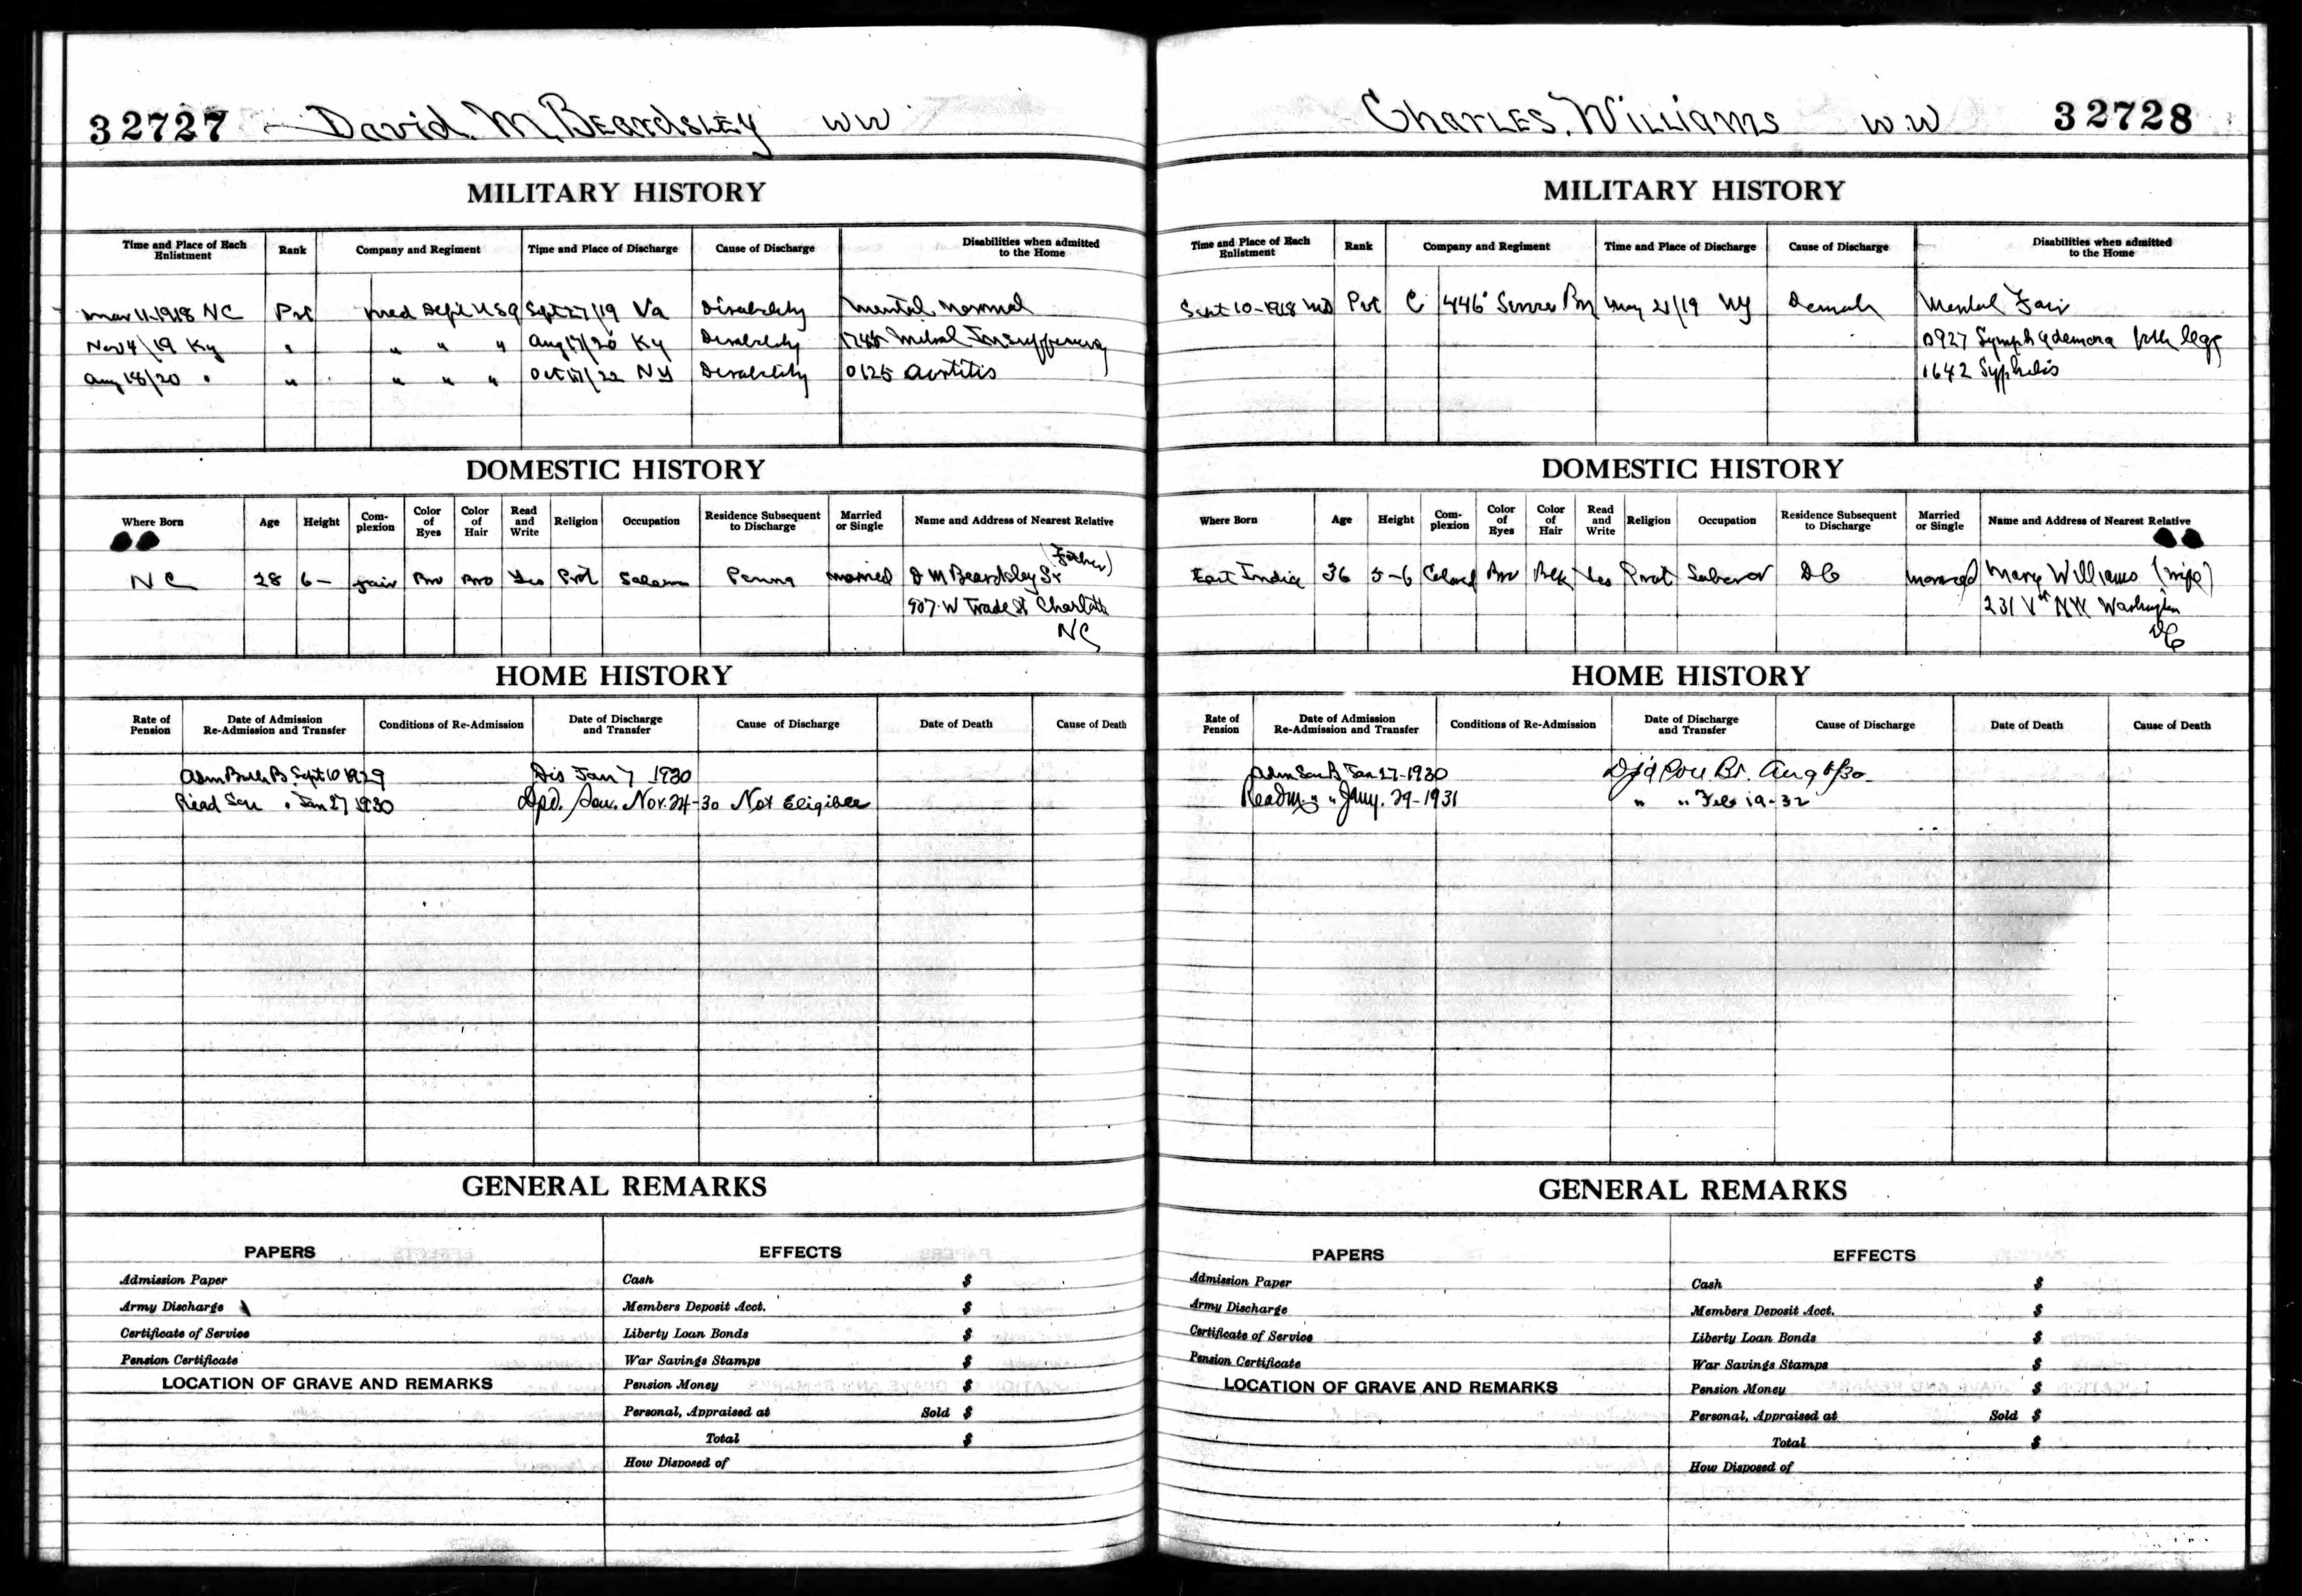 32727 David. M. Beardsley WW
MILITARY HISTORY
Time and Place of Each Enlistment Rank Company and Regiment Time and Place of Discharge Cause of Discharge Disabilities when admitted to the Home
Mar 11-1918 NC Pvt Med Dept USA Sept 27/19 Va Disability Mental Normal
Nov 4/19 Ky " " " " Aug 17/20 Ky Disability Mitral Insufficiency
Aug 18/20 " " " " " Oct /22 NY Disability 0125 Aortitis
DOMESTIC HISTORY
Where Born Age Height Com-plexion Color of Eyes Color of Hair Read and Write Religion Occupation Residence Subsequent to Discharge Married or Single Name and Address of Nearest Relative
NC 28 6- Fair Bro Bro Yes Prot Penna Married D M Beardsley Sr (Father)
907 W Trade St Charlotte
NC
HOME HISTORY
Rate of Pension Date of Admission Re-Admission and Transfer Conditions of Re-Admission Date of Discharge and Transfer Cause of Discharge Date of Death Cause of Death
Adm B. Sept 10 1929 Dis Jan 7 1930
Read Sou " Jan 27 1930 Dpd. Sou. Nov. 24-30 Not Eligible
GENERAL REMARKS
PAPERS EFFECTS
Admission Paper Cash $
Army Discharge Members Deposit Acct. $
Certificate of Service Liberty Loan Bonds $
Pension Certificate War Savings Stamps $
LOCATION OF GRAVE AND REMARKS Pension Money $
Personal, Appraised at Sold $
Total $
How Disposed of
Charles. Williams W.W 32728
MILITARY HISTORY
Time and Place of Each Enlistment Rank Company and Regiment Time and Place of Discharge Cause of Discharge Disabilities when admitted to the Home
Sept 10-1918 MD Pvt C 446 Service Bn May 21/19 NY Demob Mental Fair
0927 Lymphedema both legs
1642 Syphilis
DOMESTIC HISTORY
Where Born Age Height Com-plexion Color of Eyes Color of Hair Read and Write Religion Occupation Residence Subsequent to Discharge Married or Single Name and Address of Nearest Relative
East India 36 5-6 Colored Bro Blk Yes Prot Laborer DC Married Mary Williams (wife)
231 V St NW Washington
DC
HOME HISTORY
Rate of Pension Date of Admission Re-Admission and Transfer Conditions of Re-Admission Date of Discharge and Transfer Cause of Discharge Date of Death Cause of Death
Adm Sou B Jan 27-1930 Sou Br. Aug /30
Readm. " " Jany. 29-1931 " " Feb 19-32
GENERAL REMARKS
PAPERS EFFECTS
Admission Paper Cash $
Army Discharge Members Deposit Acct. $
Certificate of Service Liberty Loan Bonds $
Pension Certificate War Savings Stamps $
LOCATION OF GRAVE AND REMARKS Pension Money $
Personal, Appraised at Sold $
Total $
How Disposed of